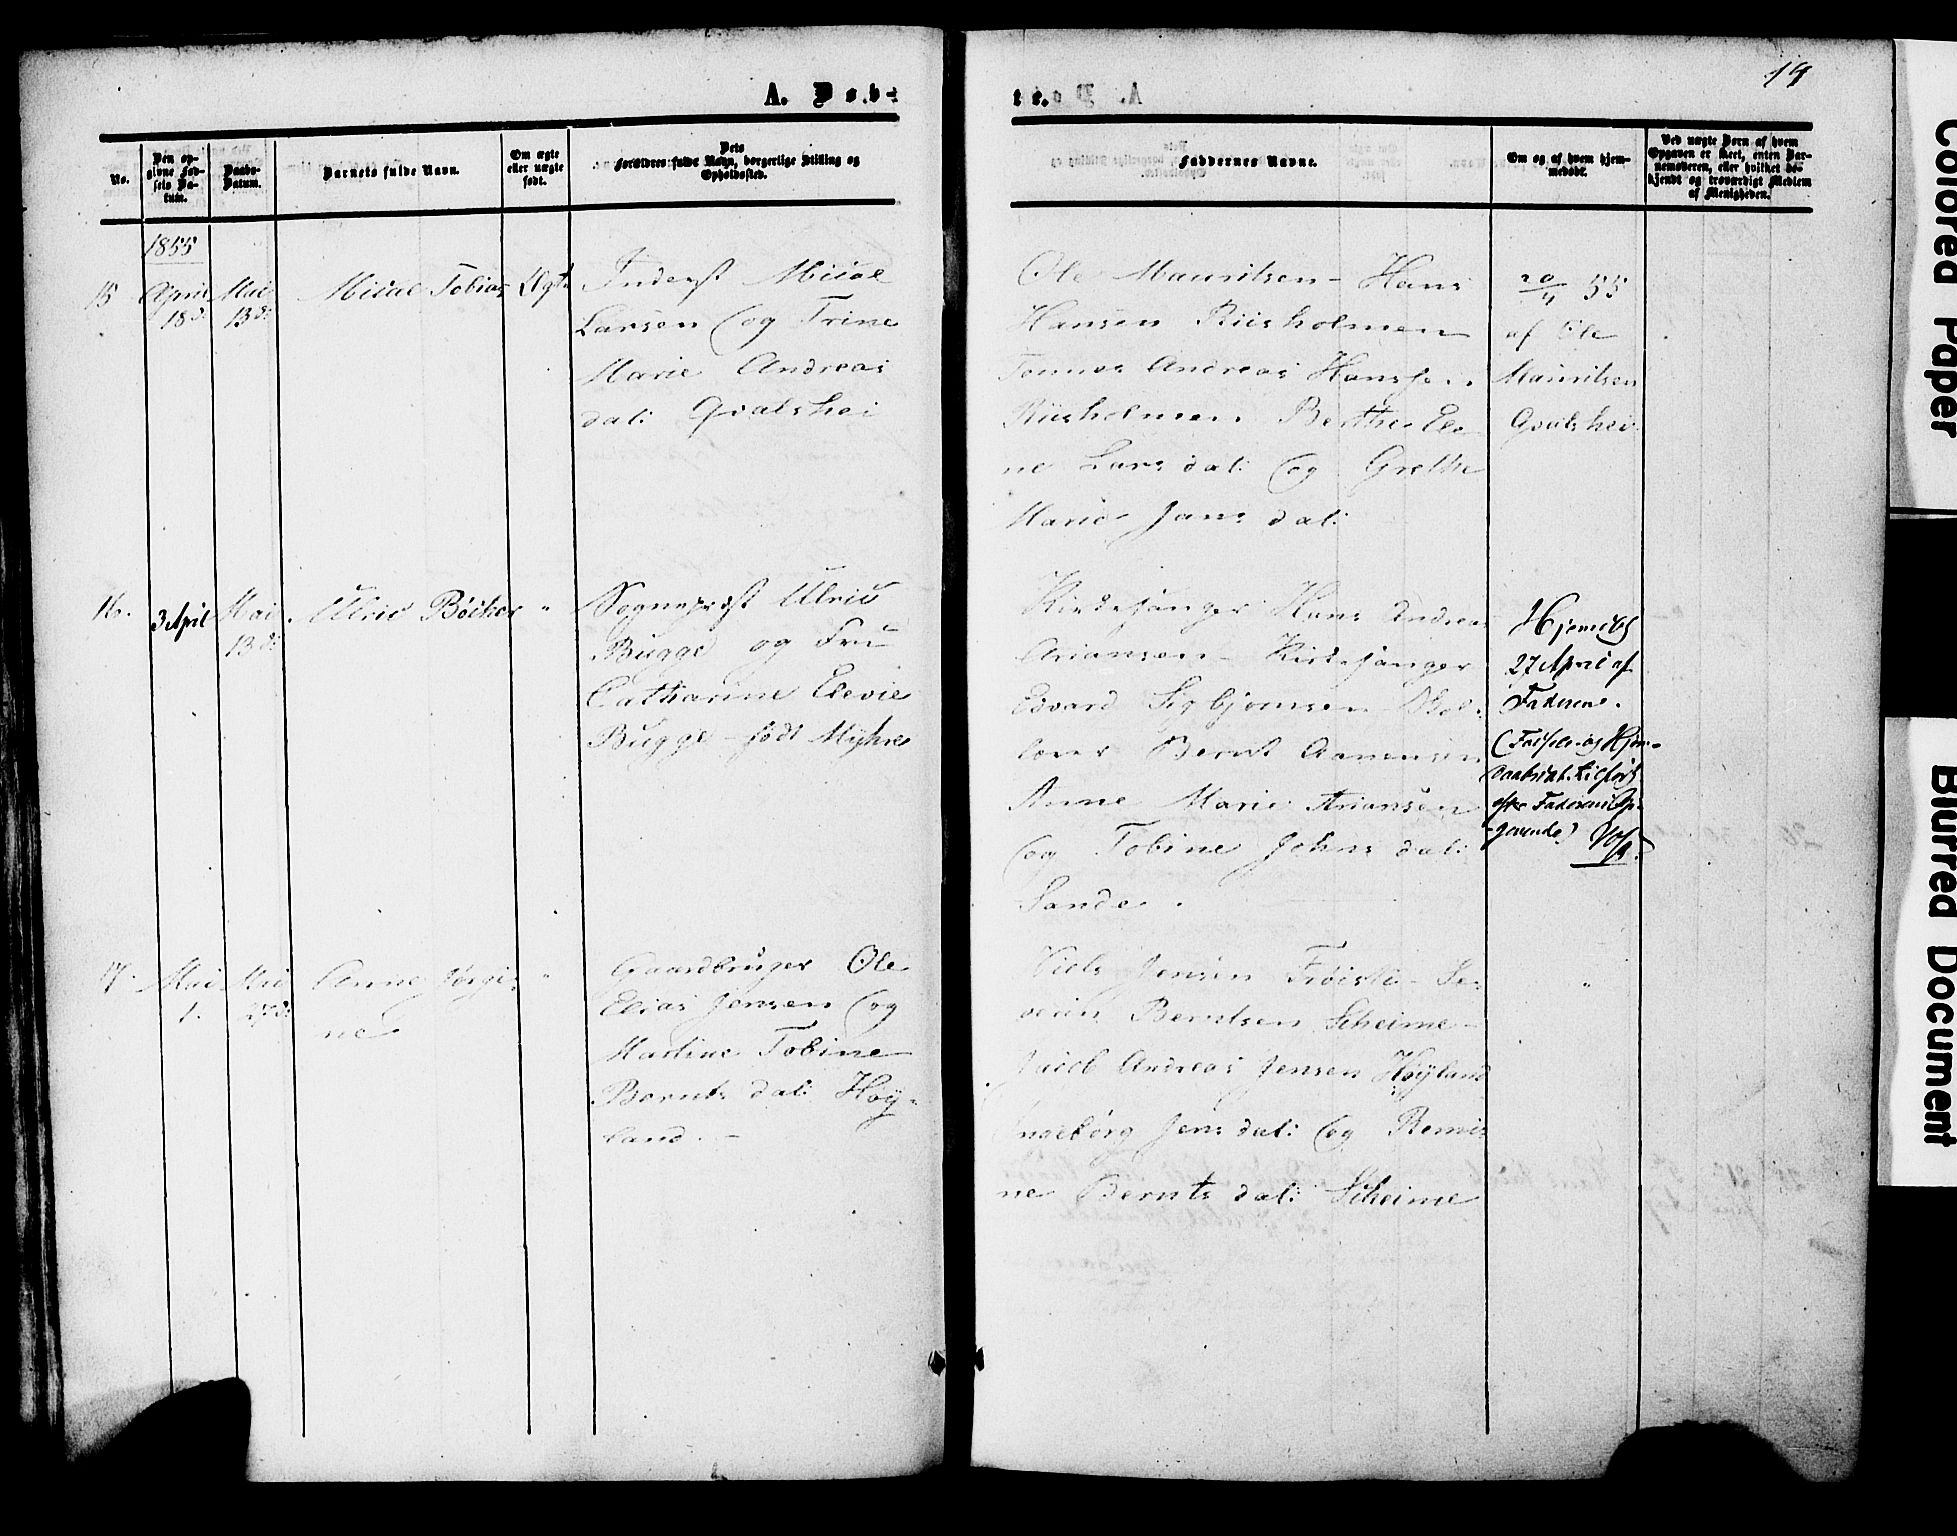 A. Døb-
te.
19
No.
Den op-
givne Fød-
sels Da-
tum.
Daabs-
Datum.
Barnets fulde Navn.
Om ægte
eller uægte
født.
Dets
Forældres fulde Navn, borgerlige Stilling og
Opholdssted.
Faddernes Navne.
Om og af hvem hjem-
medøbt.
Ved uægte Børn af hvem
Opgaven er skeet, enten Bar-
nemoderen, eller hvilket be-
kjendt og troværdigt Medlem
af Menigheden.
1855
15
April
18d:
Mai
13d:
Mical Tobias
Ægte
Inderst Mical
Larsen og Trine
Marie Andreas
dat: Qvalshei
Ole Mauritsen - Hans
Hansen Riisholmen
Tønnes Andreas Hanssen
Riisholmen Berthe Ele-
ne Lars dat: og Grethe
Marie Jans dat:
20/4 55
af Ole
Mauritsen
Qvalshei
16.
3 April
Mai
13d:
Ulric Bøcker
"
Sognepræst Ulric
Bugge og Fru
Catharine Elevie
Bugge født Myhre
Kirkesanger Hans Andreas
Ariansen - Kirkesanger
Edvard Sigbjørnsen Skol-
lærer Bernt
Anne Marie Ariansen
og Tobine Johns dat:
Sande.
Hjemdøbt
27 April af
Faderen.
(Fødsels- og Hjem-
daabsdat. tilført
efter Faderens Op-
givende)
17.
Mai
1.
Mai
27d:
Anne Tørgi-
ne
"
Gaardbruger Ole
Elias Jensen og
Martine Tobine
Bernts dat: Høy-
land. -
Niels Jensen - Se-
verin Berntsen Scheime -
Jacob Andreas Jensen Høyland
Ingeborg Jens dat: og Berni-
ne Bernts dat: Scheime
"
Colored Paper
Blurred Document